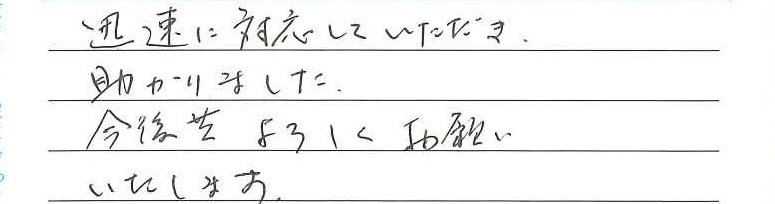 迅速に対応していただき、
助かりました。
今後共よろしくお願い
いたします。